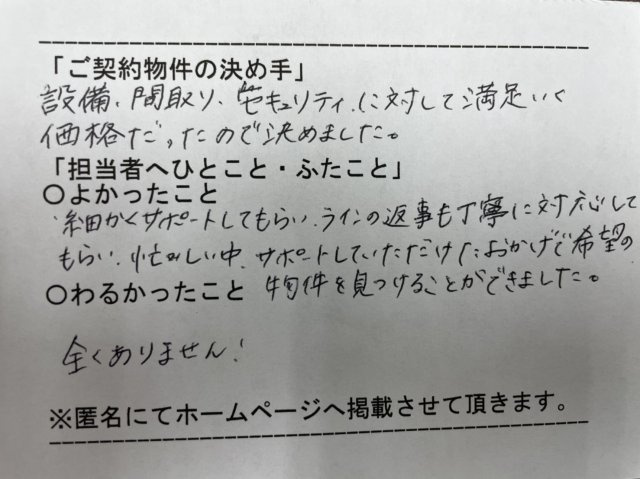 「ご契約物件の決め手」
設備、間取り、セキュリティ、に対して満足いく
価格だったので決めました。
「担当者へひとこと・ふたこと」
〇よかったこと
細かくサポートしてもらい、ラインの返事も丁寧に対応して
もらい、忙しい中、サポートしていただけたおかげで希望の
〇わるかったこと 物件を見つけることができました。
全くありません!
※匿名にてホームページへ掲載させて頂きます。